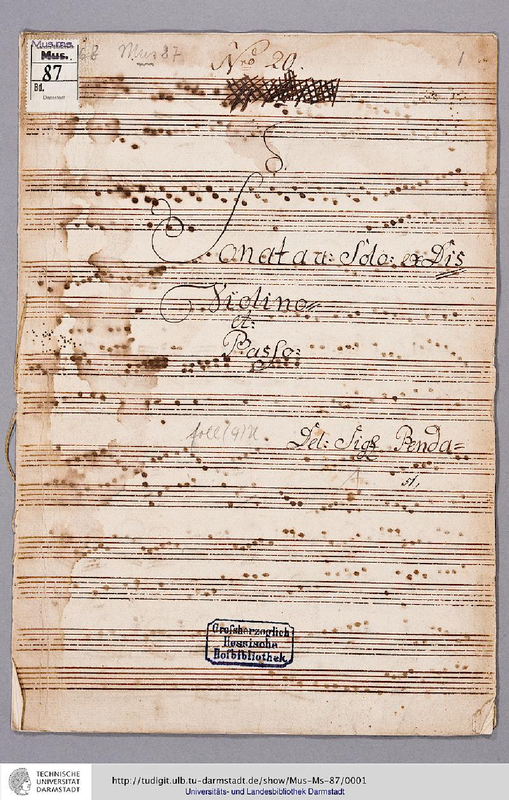 Mus.ms.
Mus.
87
Bd.
Darmstadt
Mus 87
Nro 20.
1
Sonata a: Solo: ex Dis
Violino
et:
Basso:
Del: Sigr Penda=
st,
Großherzoglich
Hessische
Hofbibliothek.
TECHNISCHE
UNIVERSITÄT
DARMSTADT
http://tudigit.ulb.tu-darmstadt.de/show/Mus-Ms-87/0001
Universitäts- und Landesbibliothek Darmstadt